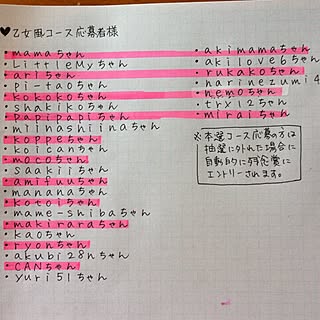 ♥乙女風コース応募者様
・mamaちゃん
・LittleMyちゃん
・ariちゃん
・pi-taoちゃん
・kokokoちゃん
・shakikoちゃん
・papipapiちゃん
・miinashiinaちゃん
・koppeちゃん
・koicanちゃん
・mocoちゃん
・saakiiちゃん
・amifuuちゃん
・mananaちゃん
・kotoiちゃん
・mame-shibaちゃん
・makiraraちゃん
・kaoちゃん
・ryonちゃん
・akubi28nちゃん
・CANちゃん
・yuri51ちゃん
・akimamaちゃん
・akilove6ちゃん
・rukakoちゃん
・narinezumi4
・nemoちゃん
・try12ちゃん
・miraiちゃん
※本選コース応募の方は
抽選に外れた場合に
自動的に残念賞に
エントリーされます。